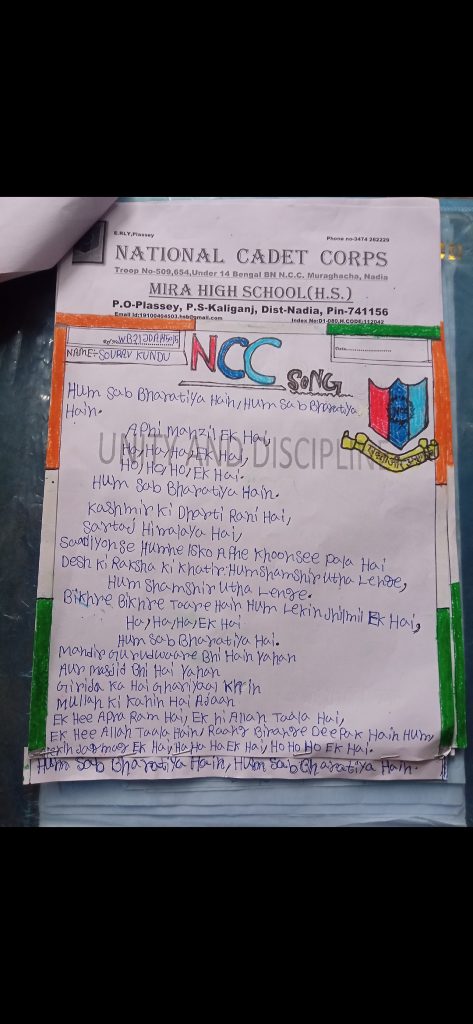 E.RLY,Plassey
Phone no-3474 262229
NATIONAL CADET CORPS
Troop No-509,654,Under 14 Bengal BN N.C.C. Muraghacha, Nadia
MIRA HIGH SCHOOL(H.S.)
P.O-Plassey, P.S-Kaliganj, Dist-Nadia, Pin-741156
Email Id:19100404503.hsb@gmail.com
Index No:D1-080,H.CODE:112042
NAME:-SOURAV KUNDU
Date
NCC SONG
Hum Sab Bharatiya Hain, Hum Sab Bharatiya
Hain.
Aphi Manzil Ek Hai,
Ha, Ha, Ha, Ek Hai,
Ho, Ho, Ho, Ek Hai.
UNITY AND DISCIPLINE
Hum Sab Bharatiya Hain.
NCC
Kashmir Ki Dharti Rani Hai,
Sartaj Himalaya Hai,
Saadiyonse Humne Isko Aphe Khoonsee Pala Hai
Desh Ki Raksha Ki Khatir Hum Shamshir Utha Lenge,
Hum Shamshir Utha Lenge.
Bikhre Bikhre Taare Hain Hum Lekin Jhilmil Ek Hai,
Ha, Ha, Ha, Ek Hai
Hum Sab Bharatiya Hai.
Mandir Gurudwaare Bhi Hain Yahan
Aur Masjid Bhi Hai Yahan
Girija Ka Hai Ghariyaal
Mullah Ki Kahin Hai Adaan
Ek Hee Apna Ram Hai, Ek hi Allah Taala Hai,
Ek Hee Allah Taala Hain, Deepak Hain Hum,
Ek Hai, Ha Ha Ha Ek Hai, Ho Ho Ho Ek Hai.
Hum Sab Bharatiya Hain, Hum Sab Bharatiya Hain.